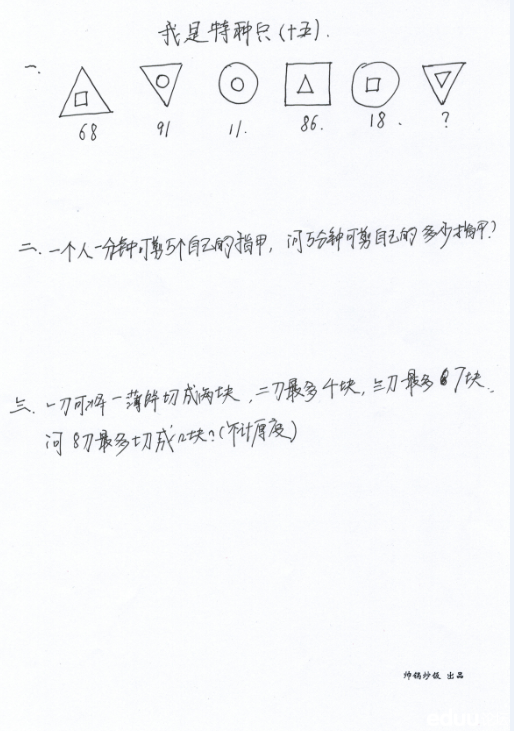 我是特种兵(十五).
一、
68 91 11. 86. 18. ?
二、一个人一分钟可剪5个自己的指甲，问5分钟可剪自己的多少指甲?
三、一刀可将一薄饼切成两块，二刀最多4块，三刀最多7块、
问8刀最多切成几块?(不计厚度)
帅锅炒饭 出品
eduu